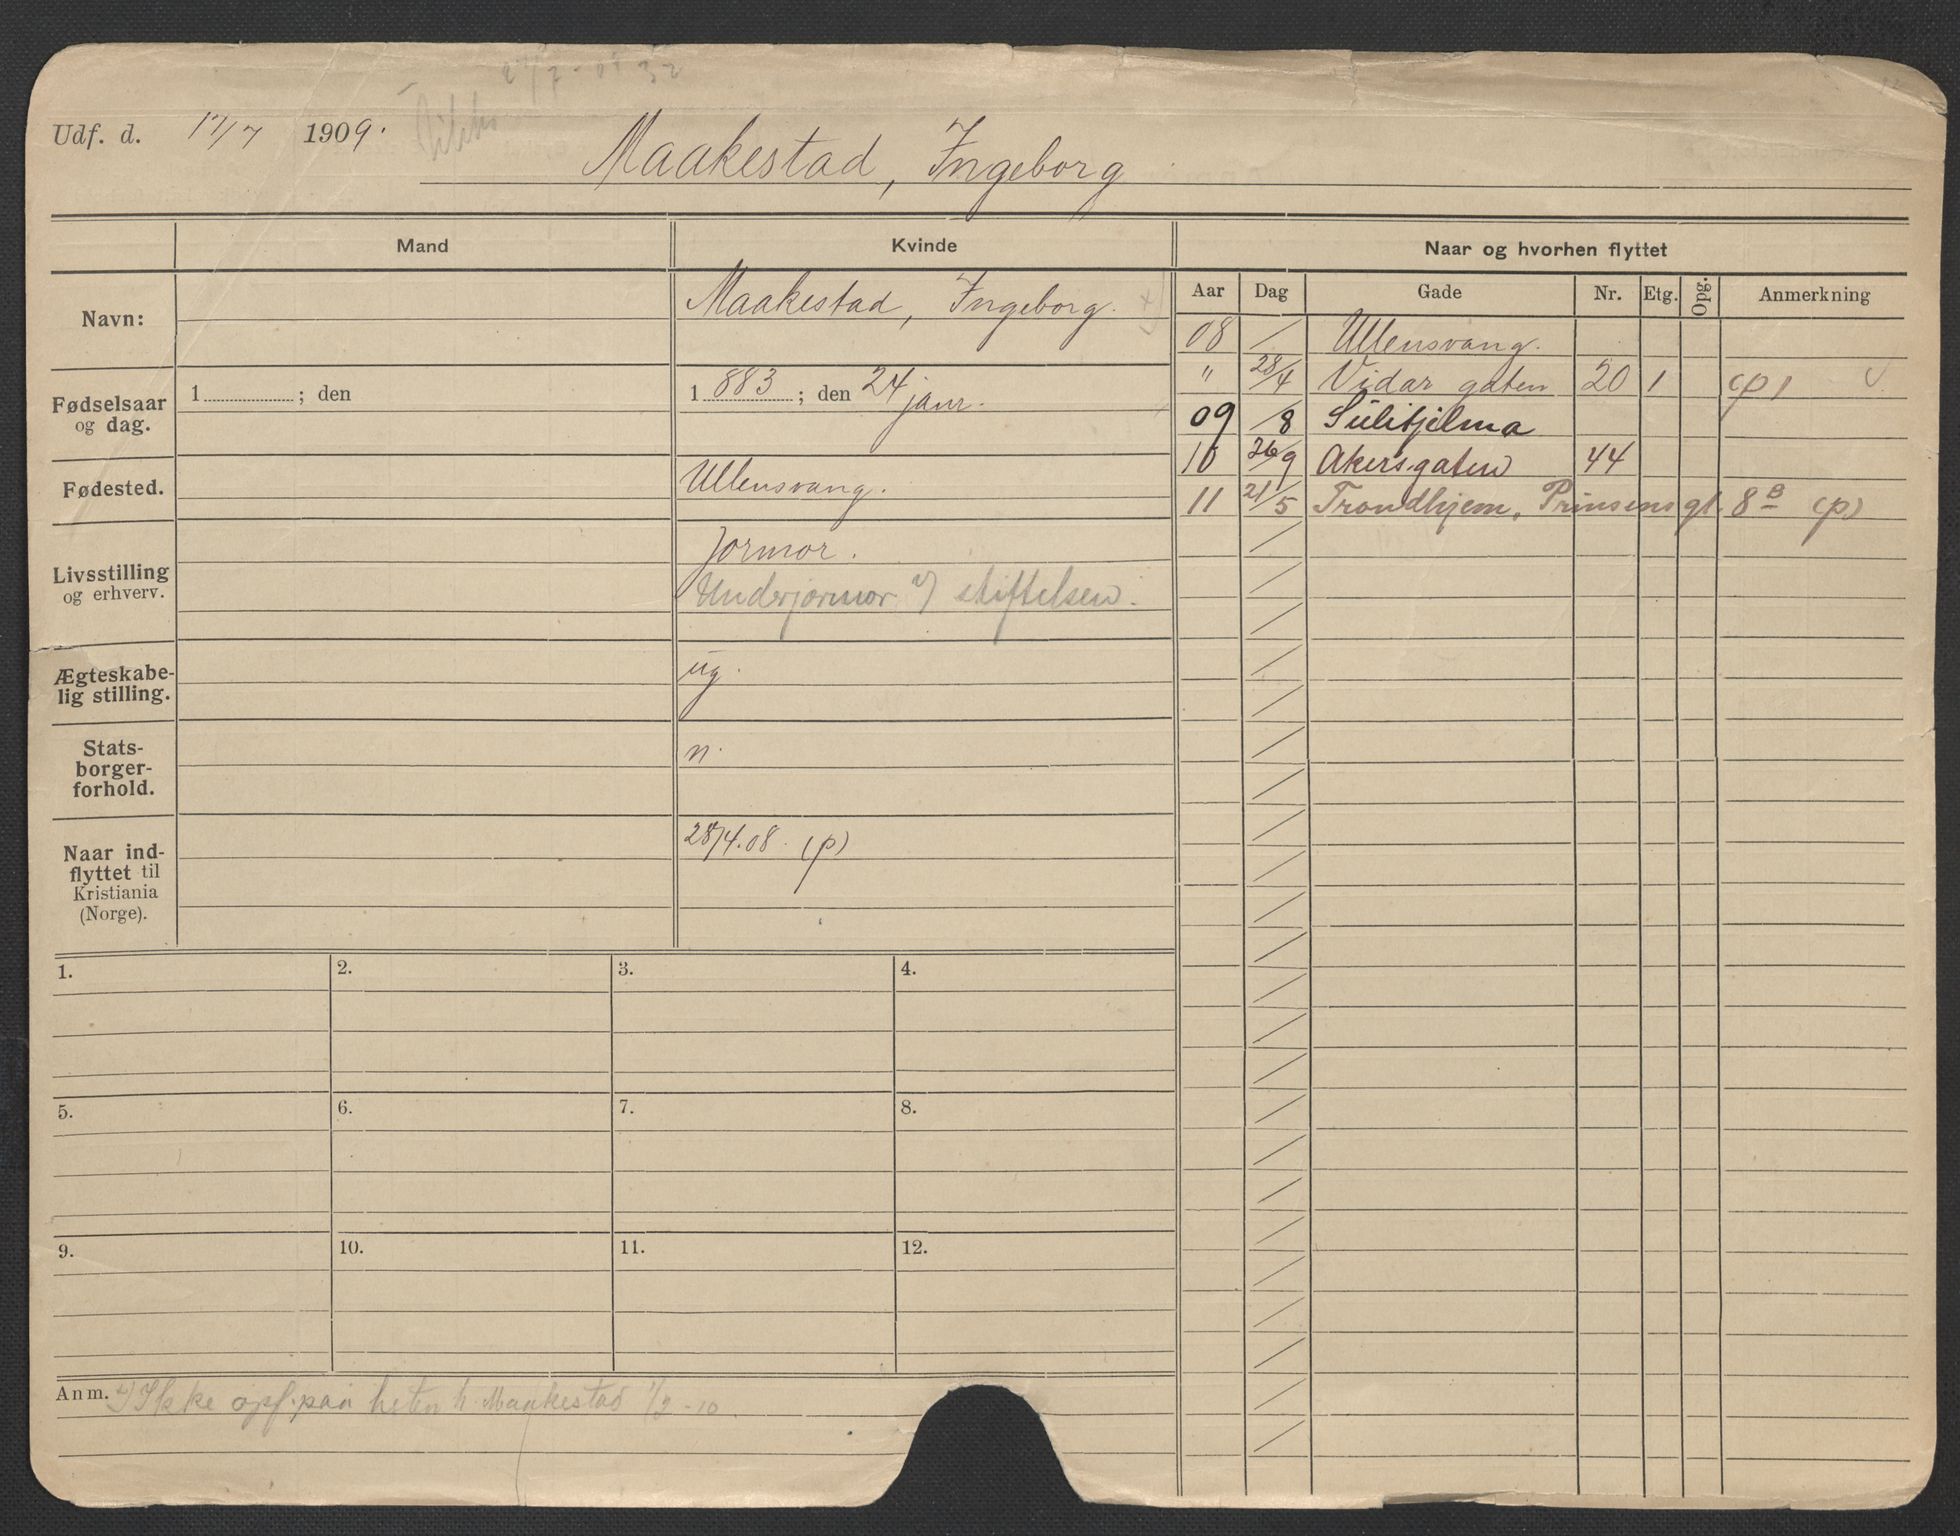 27/7-08 32
Udf. d. 17/7 1909.
Maakestad, Ingeborg
Mand
Kvinde
Naar og hvorhen flyttet
Navn:
Maakestad, Ingeborg.
Fødselsaar
og dag.
1 ; den
1 883 ; den 24 janr.
Fødested.
Ullensvang.
Livsstilling
og erhverv.
Jormor.
Underjormor v/ stiftelsen.
Ægteskabe-
lig stilling.
ug.
Stats-
borger-
forhold.
n.
Naar ind-
flyttet til
Kristiania
(Norge).
28/4.08. (p)
Aar Dag Gade Nr. Etg. Opg. Anmerkning
08 / Ullensvang.
" 28/4 Vidar gaten 20 1 (p)
09 /8 Sulitjelma
10 26/9 Akersgaten 44
11 21/5 Trondhjem, Prinsens gt. 8 B (p)
1. 2. 3. 4.
5. 6. 7. 8.
9. 10. 11. 12.
Anm. Ikke opf. paa listen h. Maakestad 1/2-10